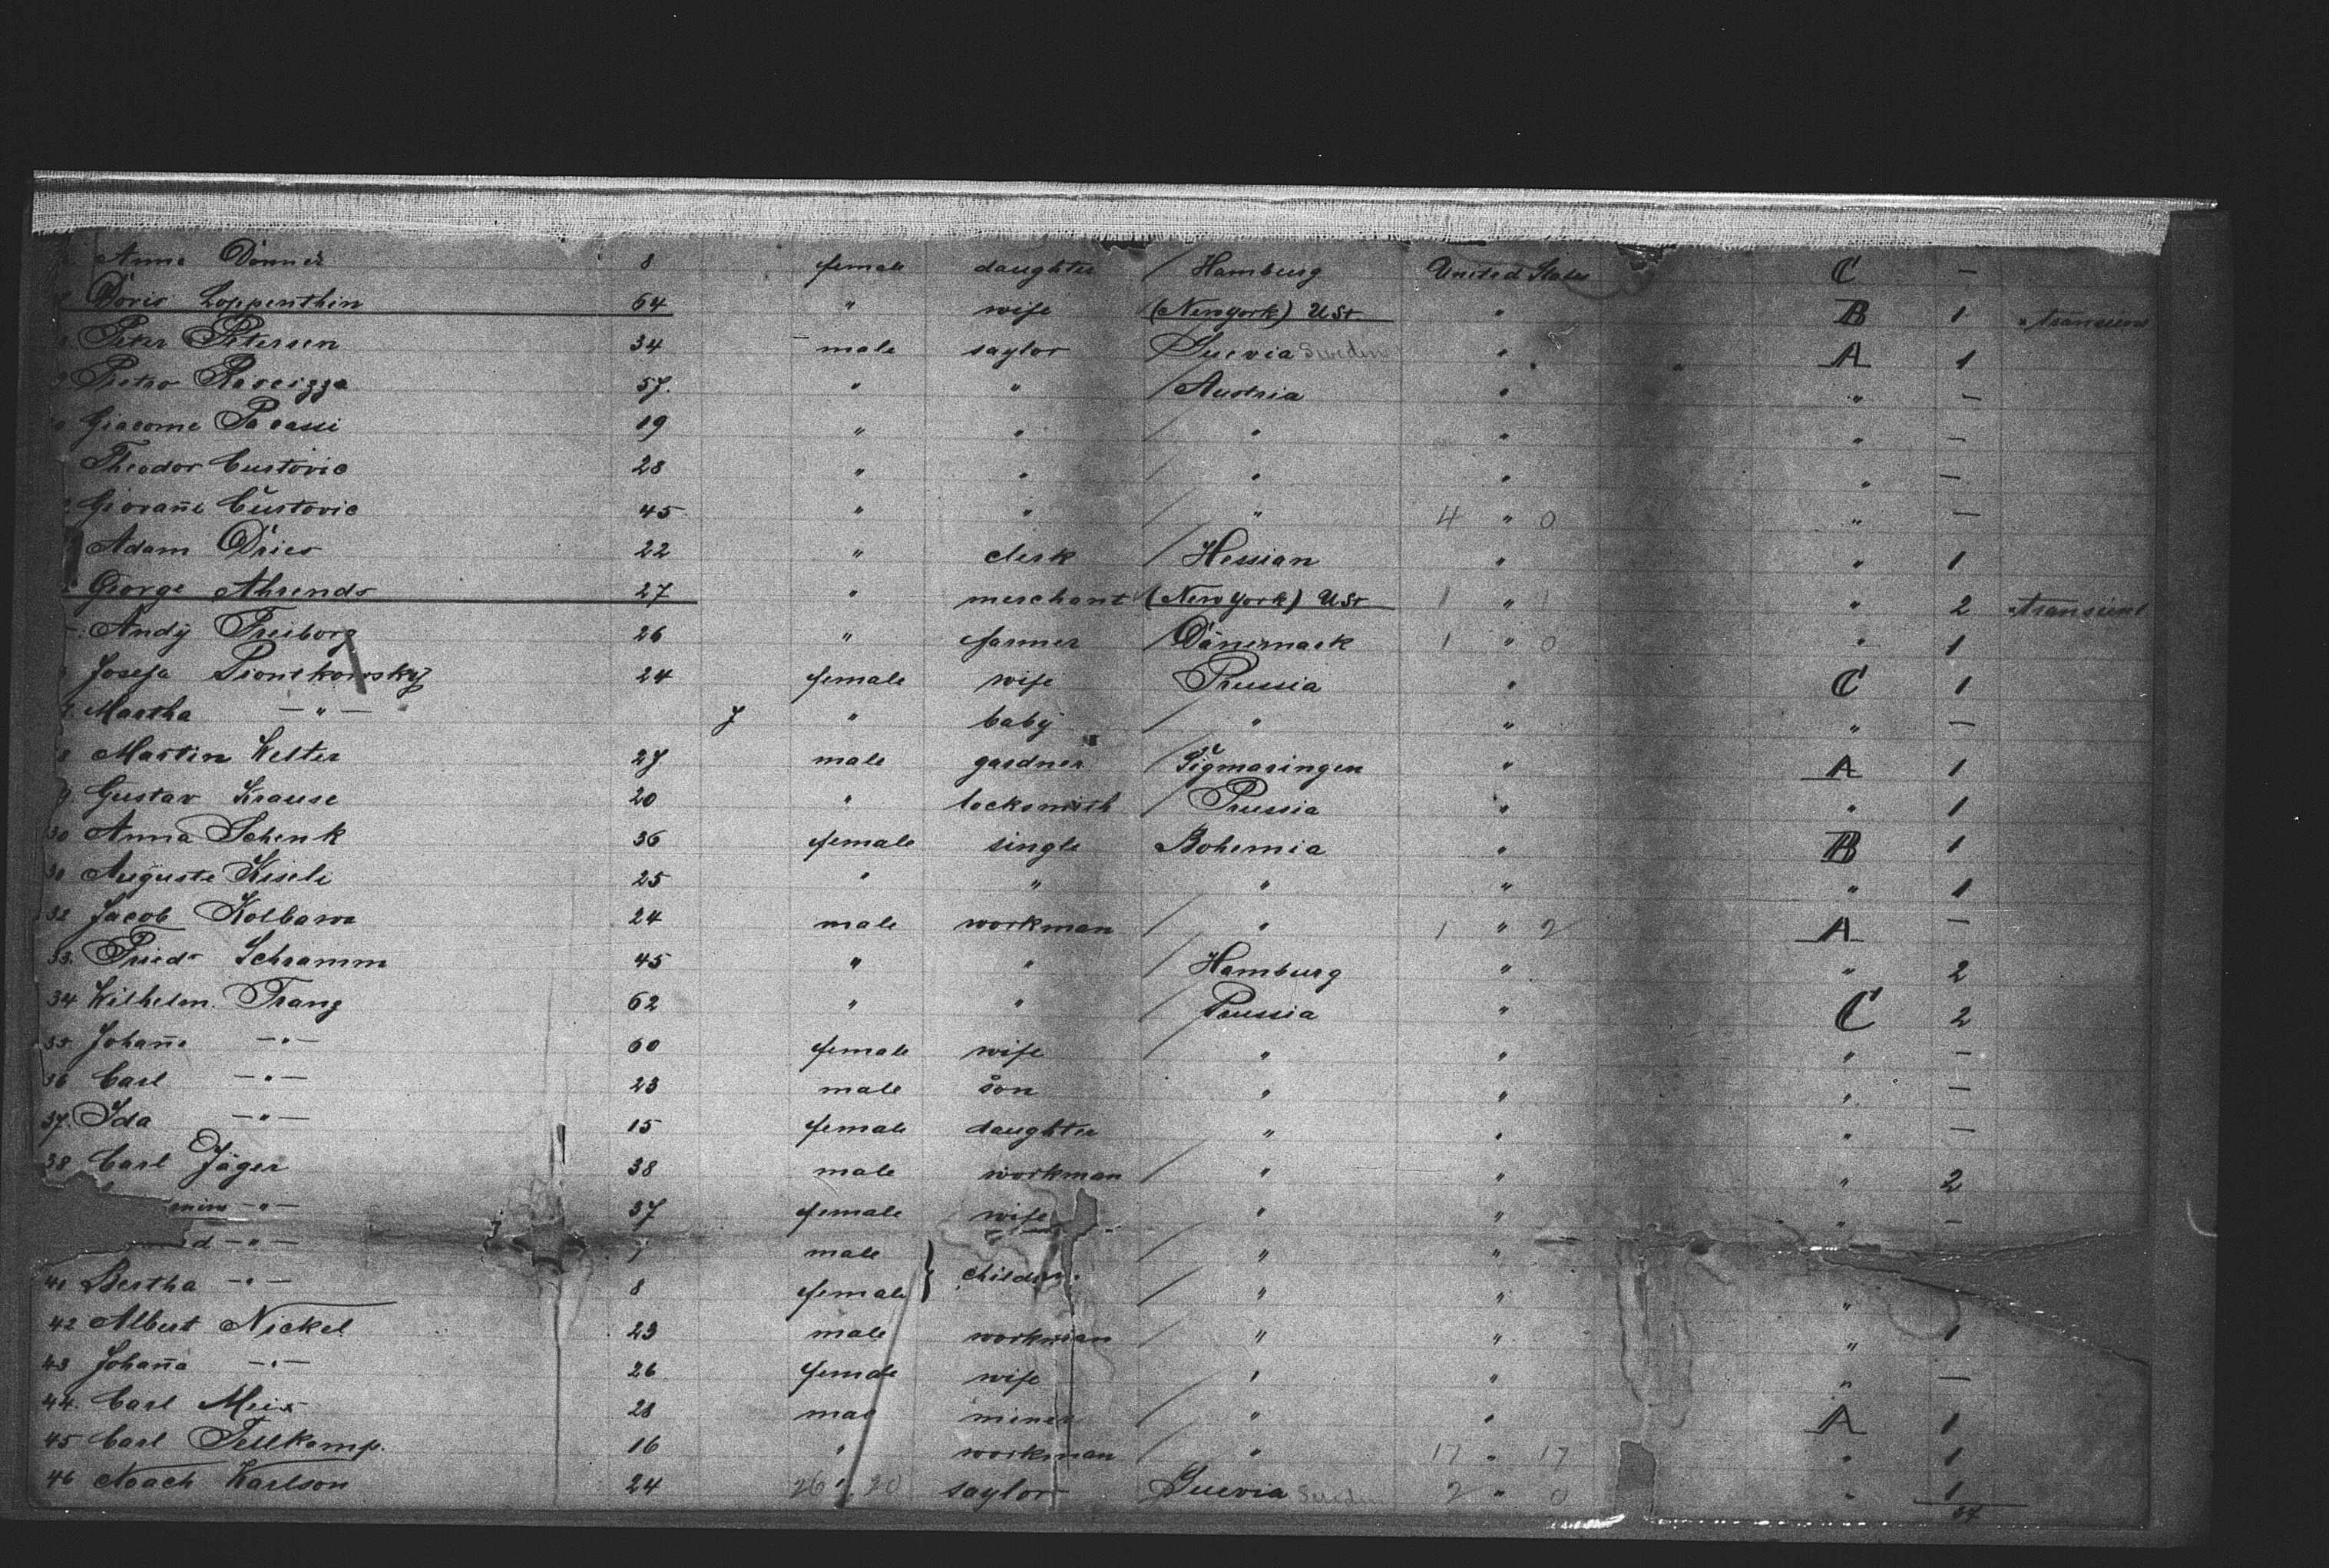 Anna Donner 8 female daughter / Hamburg United States C —
Doris Loppenthin 64 " wife (New york) USt. " B 1 transient
Peter Petersen 34 male saylor / Suevia Sweden " A 1
Pietro 57. " " / Austria " " —
Giacome Pacassi 19 " " / " " " —
Theodor Custovic 28 " " / " " " —
Giovañi Custovic 45 " " / " 4 " 0 " —
Adam Dries 22 " clerk / Hessian " " 1
George Ahrends 27 " merchant (New york) USt 1 " 1 " 2 transient
Andÿ Freiborg 26 " farmer / Dänemark 1 " 0 " 1
Josefa Piontkowskÿ 24 female wife / Prussia " C 1
Martha — " — 7 " babÿ / " " " —
Martin Welter 27 male gardner / Sigmaringen " A 1
Gustav Krause 20 " locksmith / Prussia " " 1
30 Anna Schenk 36 female single Bohemia " B 1
31 Auguste Kisele 25 " " " " " 1
32 Jacob Kolbawa 24 male workman / " 1 " 2 A —
33. Friedr Schramm 45 " " / Hamburg " " 2
34 Wilhelm. Franz 62 " " / Prussia " C 2
35 Johañe — " — 60 female wife / " " " —
36 Carl — " — 23 male son " " " —
37. Ida — " — 15 female daughter " " " —
38 Carl Jäger 38 male workman / " " " 2
— " — 37 female wife " " " —
— " — male / " "
41 Bertha — " — 8 female } children. / " " "
42 Albert Nickel 23 male workman / " " " 1
43 Johaña — " — 26 female wife " " " —
44. Carl Meix 28 male miner / " " A 1
45 Carl Tellkamp. 16 " workman / " 17 " 17 " 1
46 Noach Karlson 24 26 " 20 saylor / Suevia Sweden 2 " 0 " 1